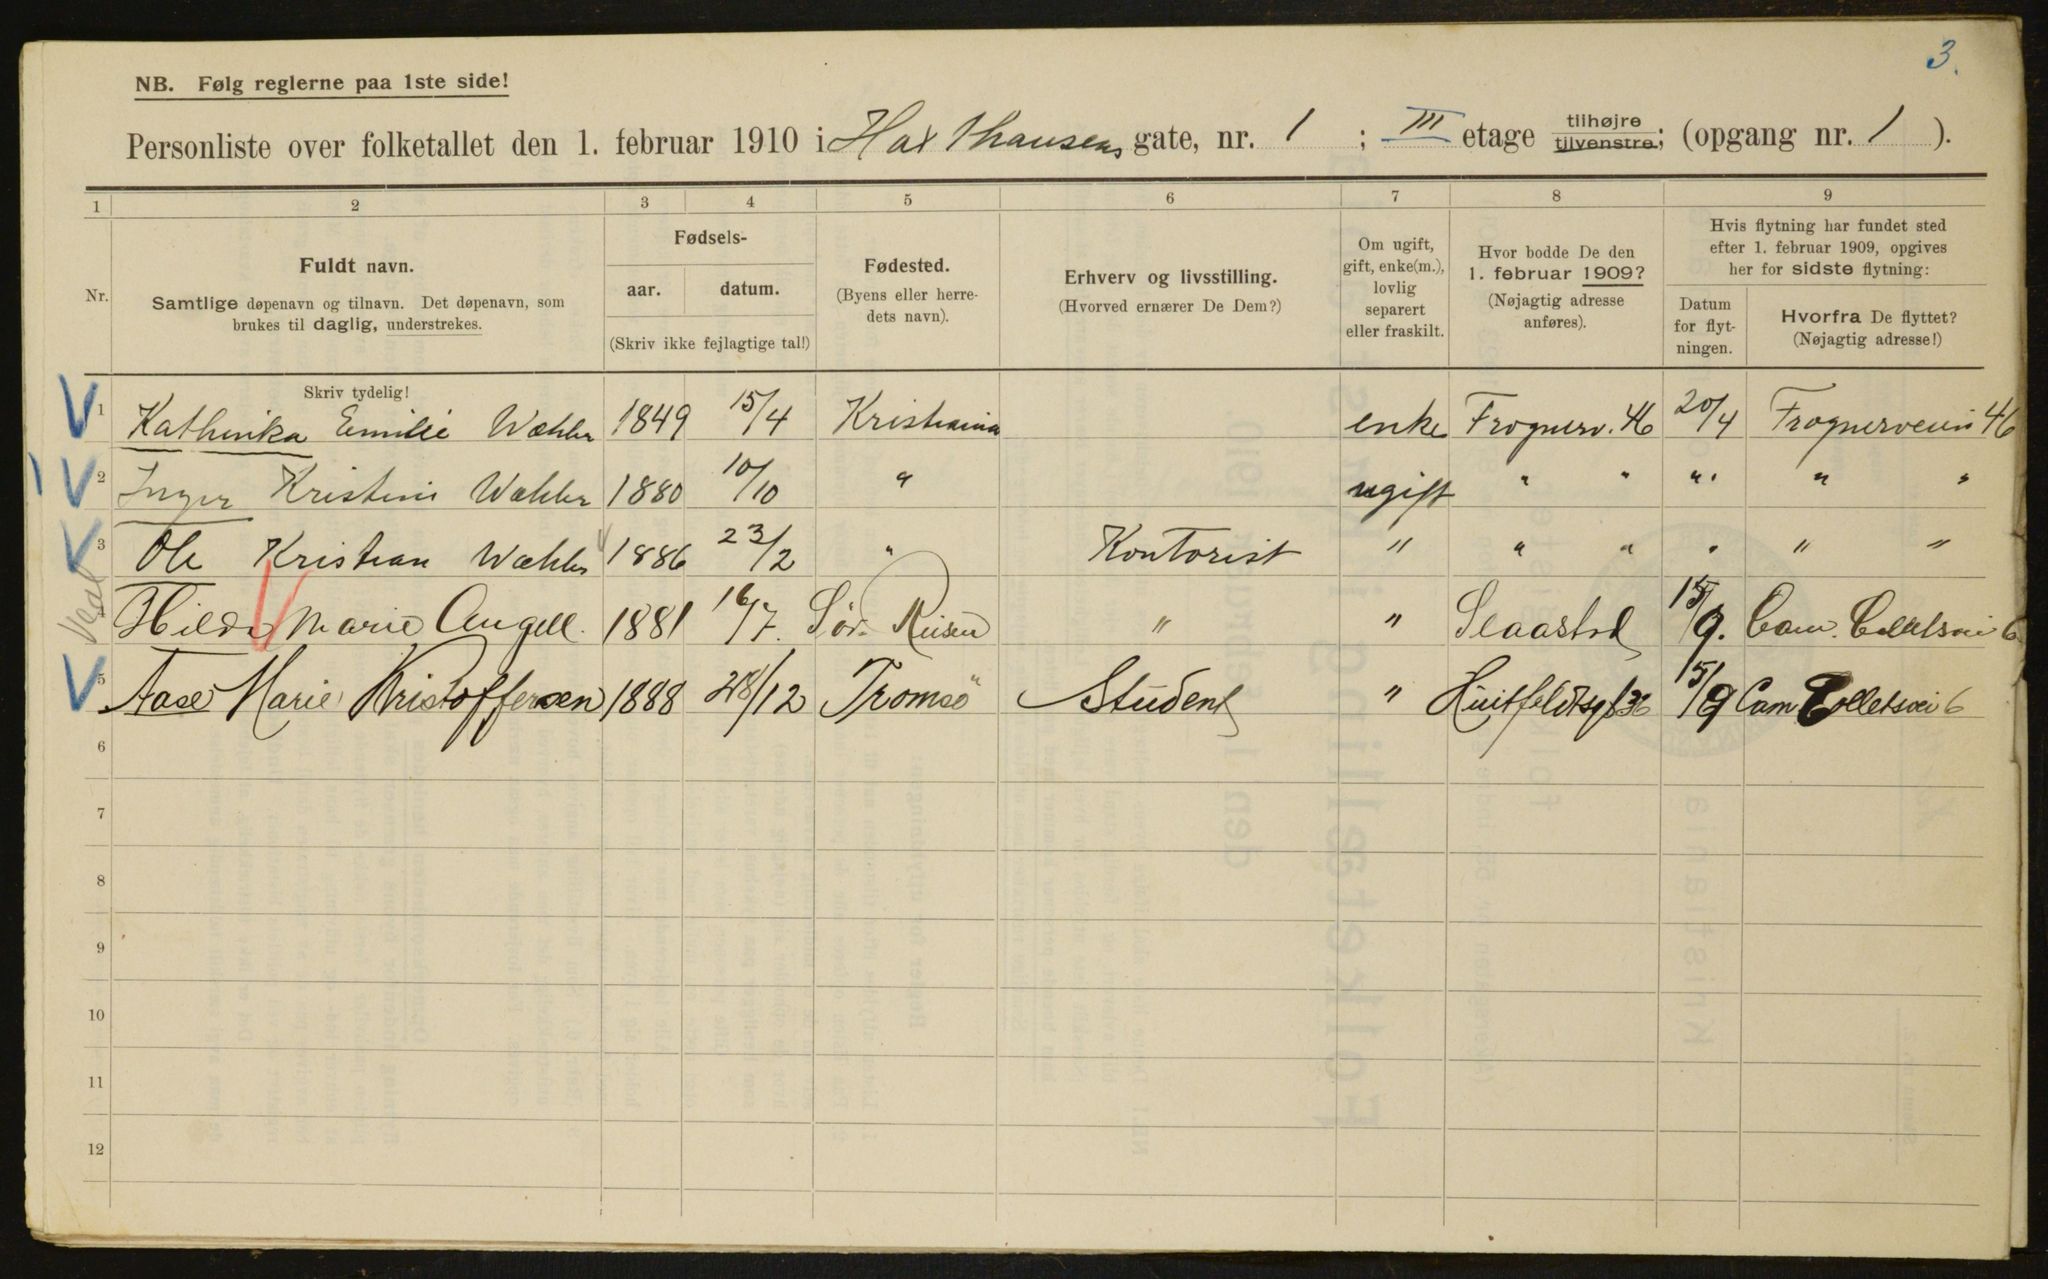 3.
NB. Følg reglerne paa 1ste side!
Personliste over folketallet den 1. februar 1910 i Haxthausens gate, nr. 1 ; III etage tilhøjre tilvenstre; (opgang nr. 1 ).
1 2 3 4 5 6 7 8 9
Nr.
Fuldt navn.
Samtlige døpenavn og tilnavn. Det døpenavn, som
brukes til daglig, understrekes.
Skriv tydelig!
Fødsels-
aar. datum.
(Skriv ikke fejlagtige tal!)
Fødested.
(Byens eller herre-
dets navn).
Erhverv og livsstilling.
(Hvorved ernærer De Dem?)
Om ugift,
gift, enke(m.),
lovlig
separert
eller fraskilt.
Hvor bodde De den
1. februar 1909?
(Nøjagtig adresse
anføres).
Hvis flytning har fundet sted
efter 1. februar 1909, opgives
her for sidste flytning:
Datum
for flyt-
ningen.
Hvorfra De flyttet?
(Nøjagtig adresse!)
V 1 Kathinka Emilie Wæhler 1849 15/4 Kristiania enke Frognerv. 46 20/4 Frognerveien 46
1 V 2 Inger Kristine Wæhler 1880 10/10 " ugift " " " " "
V 3 Ole Kristian Wæhler 1886 23/2 " Kontorist " " " " " "
4 Hilda Marie Angell. 1881 16/7. Sör. Reisen " " 15/9. Cam. Colletsvei 6
V 5 Aase Marie Kristoffersen 1888 28/12 Tromsö Student " Huitfeldtsgt 36 15/9 Cam Colletsvei 6
6
7
8
9
10
11
12